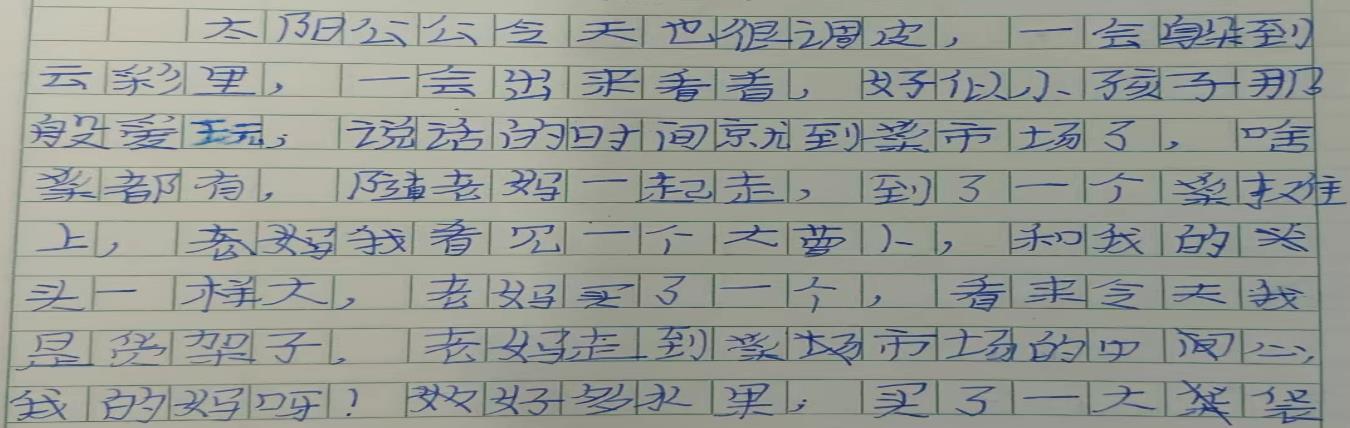 太阳公公今天也很调皮，一会躲到
云彩里，一会出来看看，好似小孩子那
般爱玩，说话的时间就到菜市场了，啥
菜都有，随老妈一起走，到了一个菜摊
上，老妈我看见一个大萝卜，和我的
头一样大，老妈买了一个，看来今天我
是货架子，老妈走到菜场市场的中间心，
我的妈呀！好多水果，买了一大袋